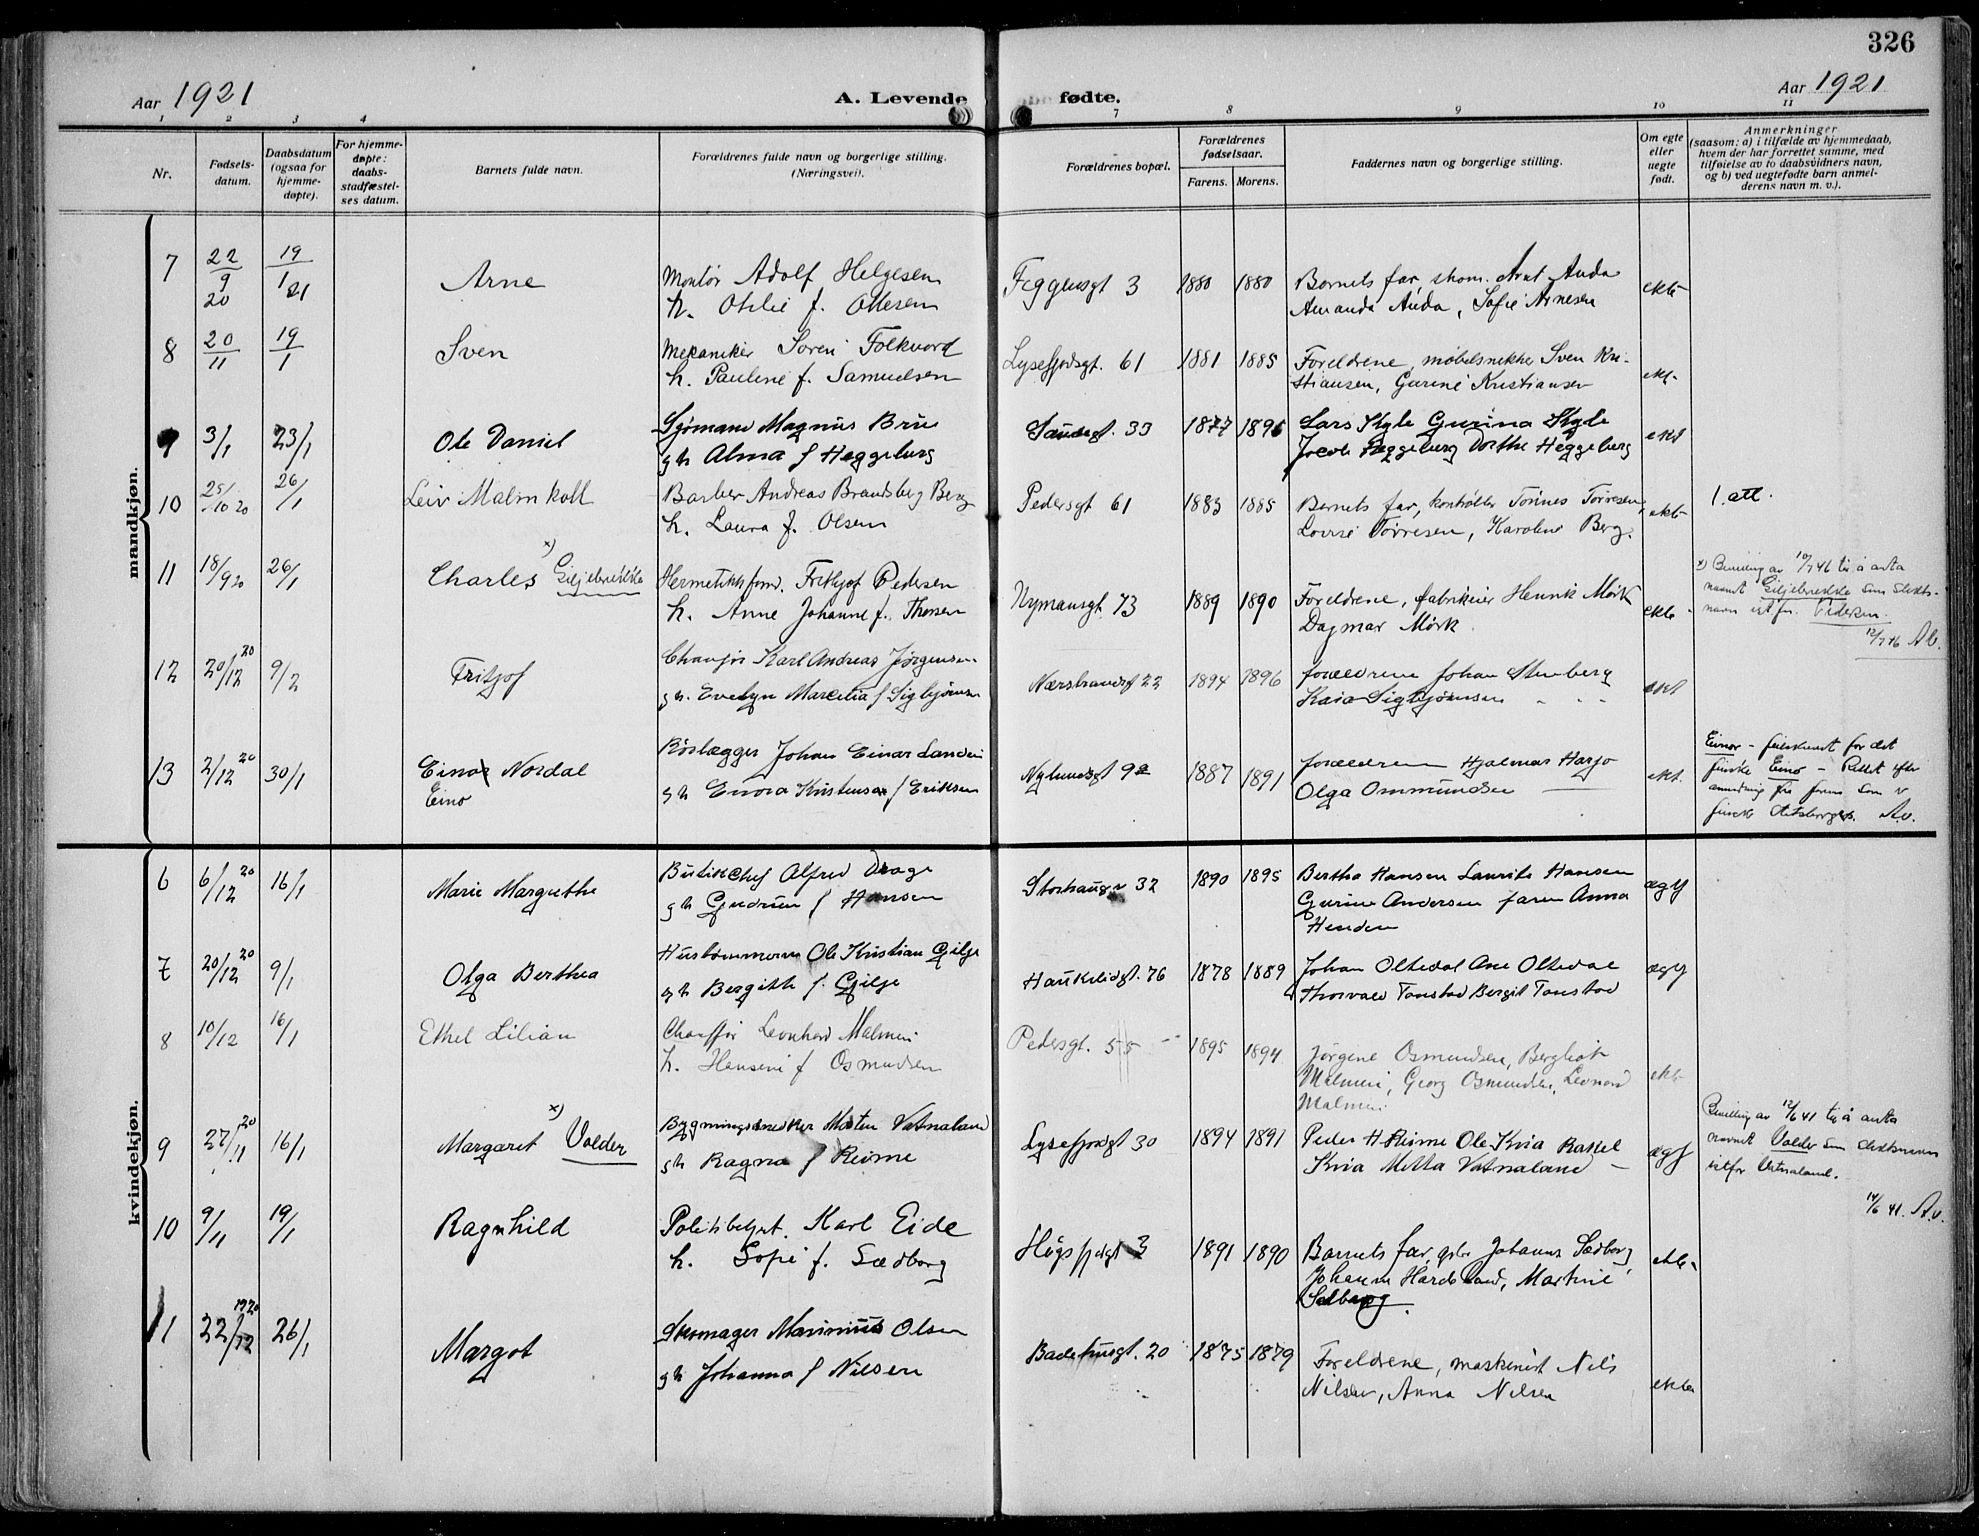 326
Aar 1921
A. Levende fødte.
Aar 1921
1 2 3 4 7 8 9 10 11
Nr.
Fødsels-
datum.
Daabsdatum
(ogsaa for
hjemme-
døpte).
For hjemme-
døpte:
daabs-
stadfæstel-
ses datum.
Barnets fulde navn.
Forældrenes fulde navn og borgerlige stilling.
(Næringsvei).
Forældrenes bopæl.
Forældrenes
fødselsaar.
Farens. Morens.
Faddernes navn og borgerlige stilling.
Om egte
eller
uegte
født.
Anmerkninger
(saasom: a) i tilfælde av hjemmedaab,
hvem der har forrettet samme, med
tilføielse av to daabsvidners navn,
og b) ved uegtefødte barn anmel-
derens navn m. v.).
mandkjøn.
7 22/9 20 19/1 21 Arne Montør Adolf Helgesen
h. Otilie f. Ottesen
3 1880 1880 Barnets far, skom. Arnt Auda
Amanda Auda, Sofie Arnesen
ekte
8 20/11 19/1 Sven Mekaniker Søren Folkvord
h. Pauline f. Samuelsen
Lysefjordsgt. 61 1881 1885 Foreldrene, møbelsnekker Sven Kri-
stiansen, Gurine Kristiansen
ekt.
9 3/1 23/1 Ole Daniel Sjømand Magnus Brue
g h Alma f Heggeberg
33 1877 1896 Lars Style Gurina Style
Jacob Heggeberg Dorthe Heggeberg
ekt
10 25/10 20 26/1 Leiv Malmkoll Barber Andreas Brandsberg Berg
h. Laura f. Olsen
Pedersgt 61 1883 1885 Barnets far, kontrollør Tønnes Tørresen,
Lovise Tørresen, Karoline Berg.
ekte
1. att.
11 18/9 20 26/1 Charles x) Giljebrekke Hermetikkfom. Fritjof Pedersen
h. Anne Johanne f. Thorsen
Nymansgt. 73 1889 1890 Foreldrene, fabrikeier Henrik Mörk
Dagmar Mörk.
ekte
x) Bevilling av 10/7 46 til å anta
navnet Giljebrekke som slekts-
navn istfr. Pedersen.
12/7 46 Av.
12 20/12 20 9/2 Fritjof Chauför Karl Andreas Jørgensen
g h. Evelyn Marcelia f Sigbjørnsen
Nærstrandsgt 22 1894 1896 forældrene Johan Stenberg
Kaia Sigbjørnsen
ekt
13 2/12 20 30/1 Einar Nordal
Eino
Rørlægger Johan Einar Sandin
g h Enova Kristensen f Eriksen
Nylundsgt 92 1887 1891 forældrene Hjalmar Harjo
Olga Ommundsen
ekt.
Einar - feilskrevet for det
finske Eino - Rettet efter
anmodning fra faren som er
finsk statsborger. Av.
kvindekjøn.
6 6/12 20 16/1 Marie Margrethe Butikchef Alfred Drage
g h Gudrun f Hansen
32 1890 1895 Bertha Hansen Laurits Hansen
Gurine Andersen faren Anna
Henden
ægt
7 20/12 20 9/1 Olga Berthea Hustømmerm Ole Kristian Gilje
g h Bergith f. Gilje
Haukelidgt. 76 1878 1889 Johan Oltedal Ane Oltedal
Thorvald Tanstad Bergit Tanstad
ægt
8 10/12 16/1 Ethel Lilian Chauffør Leonhard Malmin
h. Hansine f Osmundsen
Pedersgt. 55 1895 1894 Jørgine Osmundsen, Bergliot
Malmin, Georg Osmundsen, Leonard
Malmin
ekte
9 27/11 20 16/1 Margaret x) Valder Bygningssnedker Morten Vatnaland
g h Ragna f Reime
Lysefjordgt 30 1894 1891 Peder H Reime Ole Kvia Rakkel
Kvia Metta Vatnaland
ægt
Bevilling av 12/6 41 til å anta
navnet Valder som slektsnavn
istfor Vatnaland.
14/6 41. Av.
10 9/11 19/1 Ragnhild Politibetjnt. Karl Eide
h. Sofie f. Sædberg
Høgsfjdgt 3 1891 1890 Barnets far, Johanna Sædberg,
Johanna Hardeland, Martine
Sedberg
ekte
11 22/12 1920 26/1 Margot Skomager Marinius Olsen
g h Johanna f Nilsen
Badehusgt. 20 1875 1879 Foreldrene, maskinist Nils
Nilsen, Anna Nilsen
ekte